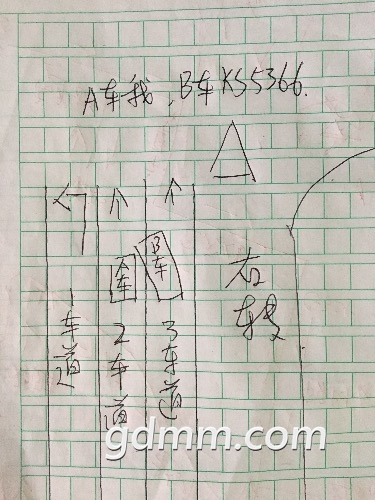 A车我,B车KS5366.
A车
B车
右转
1车道
2车道
3车道
gdmm.com